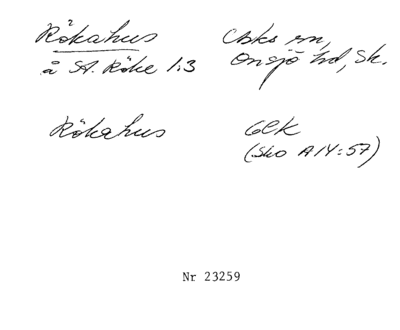 Rökahus Cbks sn,
å St. Röke 1:3 Onsjö hd, Sk.
Rökahus GEK
(Sko A14:57)
Nr 23259